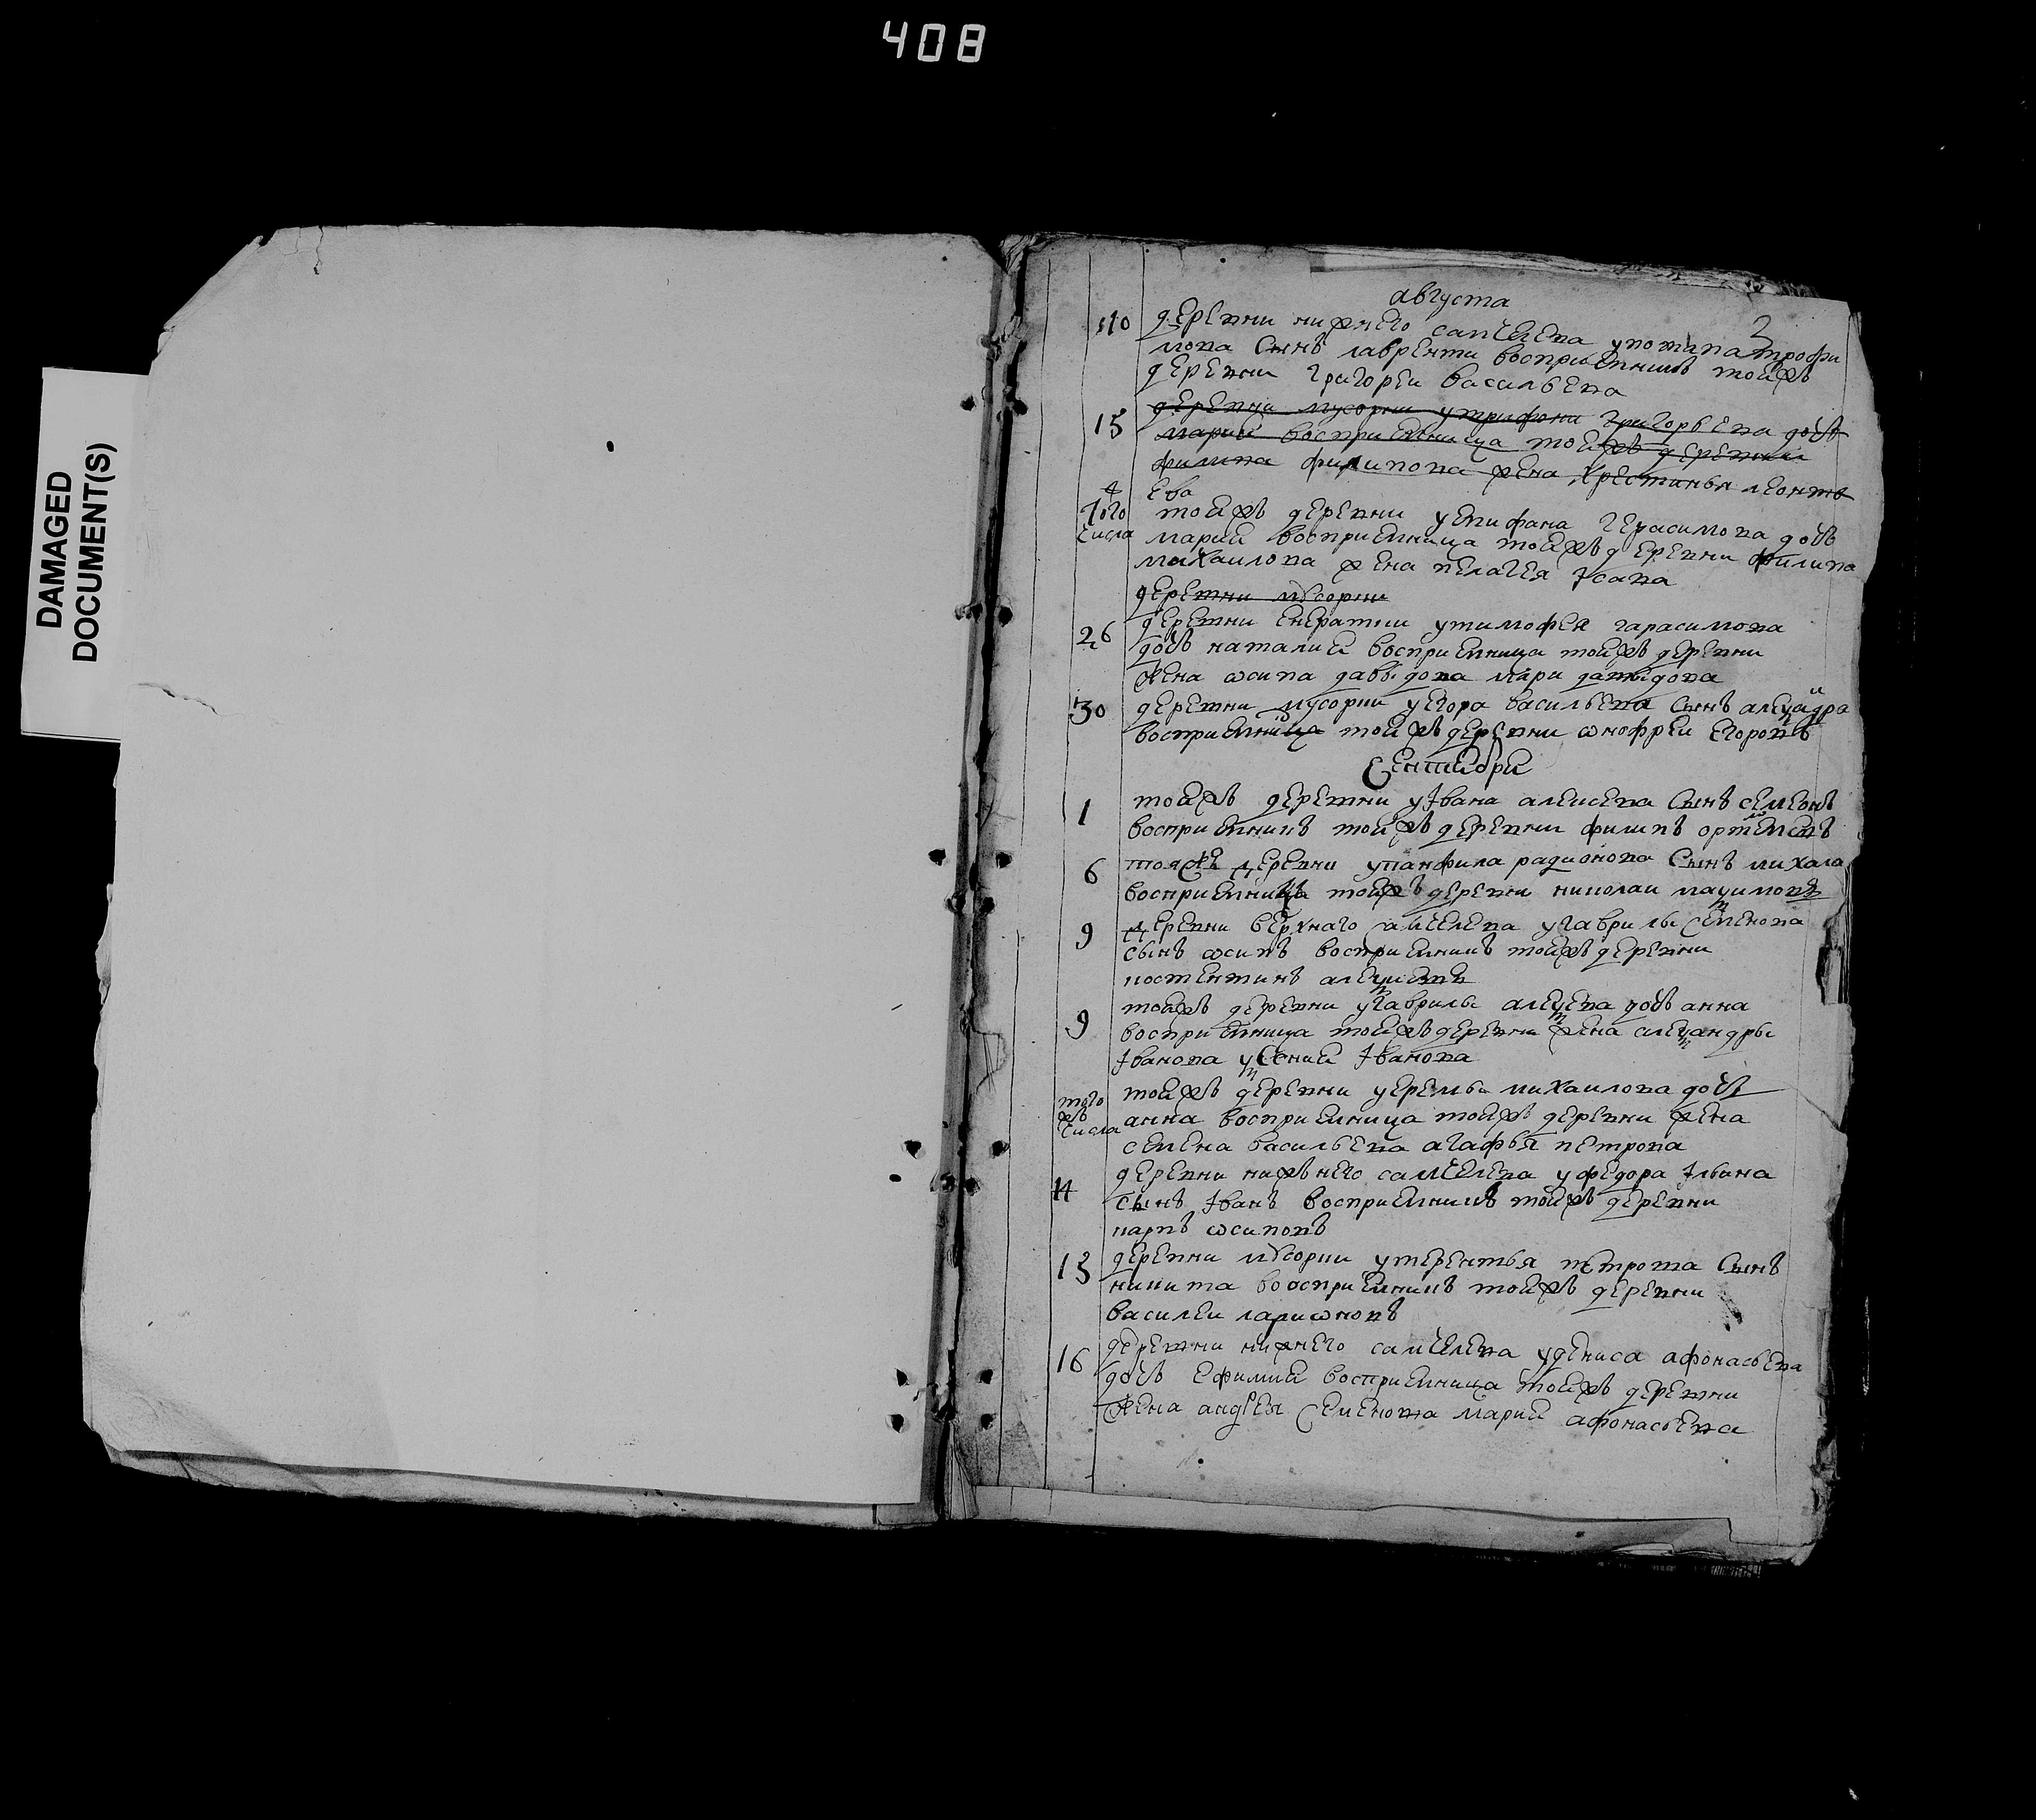 408
DAMAGED
DOCUMENT(S)
августа
2
10 деревни нижнего самселева у потапа трофи
мова сынъ лаврента восприемникъ тоежъ
деревни григореи васильева
15 деревни мусорки у трифона григорьева дочь
марии восприемница тоежъ деревни
филипа филипова жена хрестинья леонтъ
ева
того
числа
тоежъ деревни у епифана герасимова дочь
мариа восприемница тоежъ деревни филипа
михаилова жена пелагея Iсаева
деревни мусорки
26 деревни у тимофея гарасимова
дочь наталиа восприемница тоежъ деревни
жена ѡсипа давыдова мари давыдова
30 деревни мусорки у егора васильева сынъ алеѯандра
восприемница тоежъ деревни ѡнофреи егоровъ
Сентября
1 тоежъ деревни у Iвана алексеева сынъ семеонъ
восприемникъ тоежъ деревни филипъ ортемевъ
6 тояже деревни у панфила радионова сынъ михаила
восприемница тоежъ деревни николаи маѯимовъ
9 деревни верхнаго самселева у гаврилы семенова
сынъ ѡсипъ восприемникъ тоежъ деревни
костентинъ алеѯиевъ
9 тоежъ деревни у гаврилы алеѯева дочь анна
восприемница тоежъ деревни жена алеѯандры
Iванова ѯения Iванова
того
жъ
числа
тоежъ деревни у еремы михаилова дочь
анна восприемница тоежъ деревни жена
семена васильева агафья петрова
11 деревни нижънего самселева у федора Iльина
сынъ Iванъ восприемникъ тоежъ деревни
карпъ ѡсиповъ
13 деревни мусорки у терентья петрова сынъ
никита воосприемникъ тоежъ деревни
василеи лариѡновъ
16 деревни нижнего самселева у дениса афонасьева
дочь ефимиа восприемница тоежъ деревни
жена андрея семенова мариа афонасьева